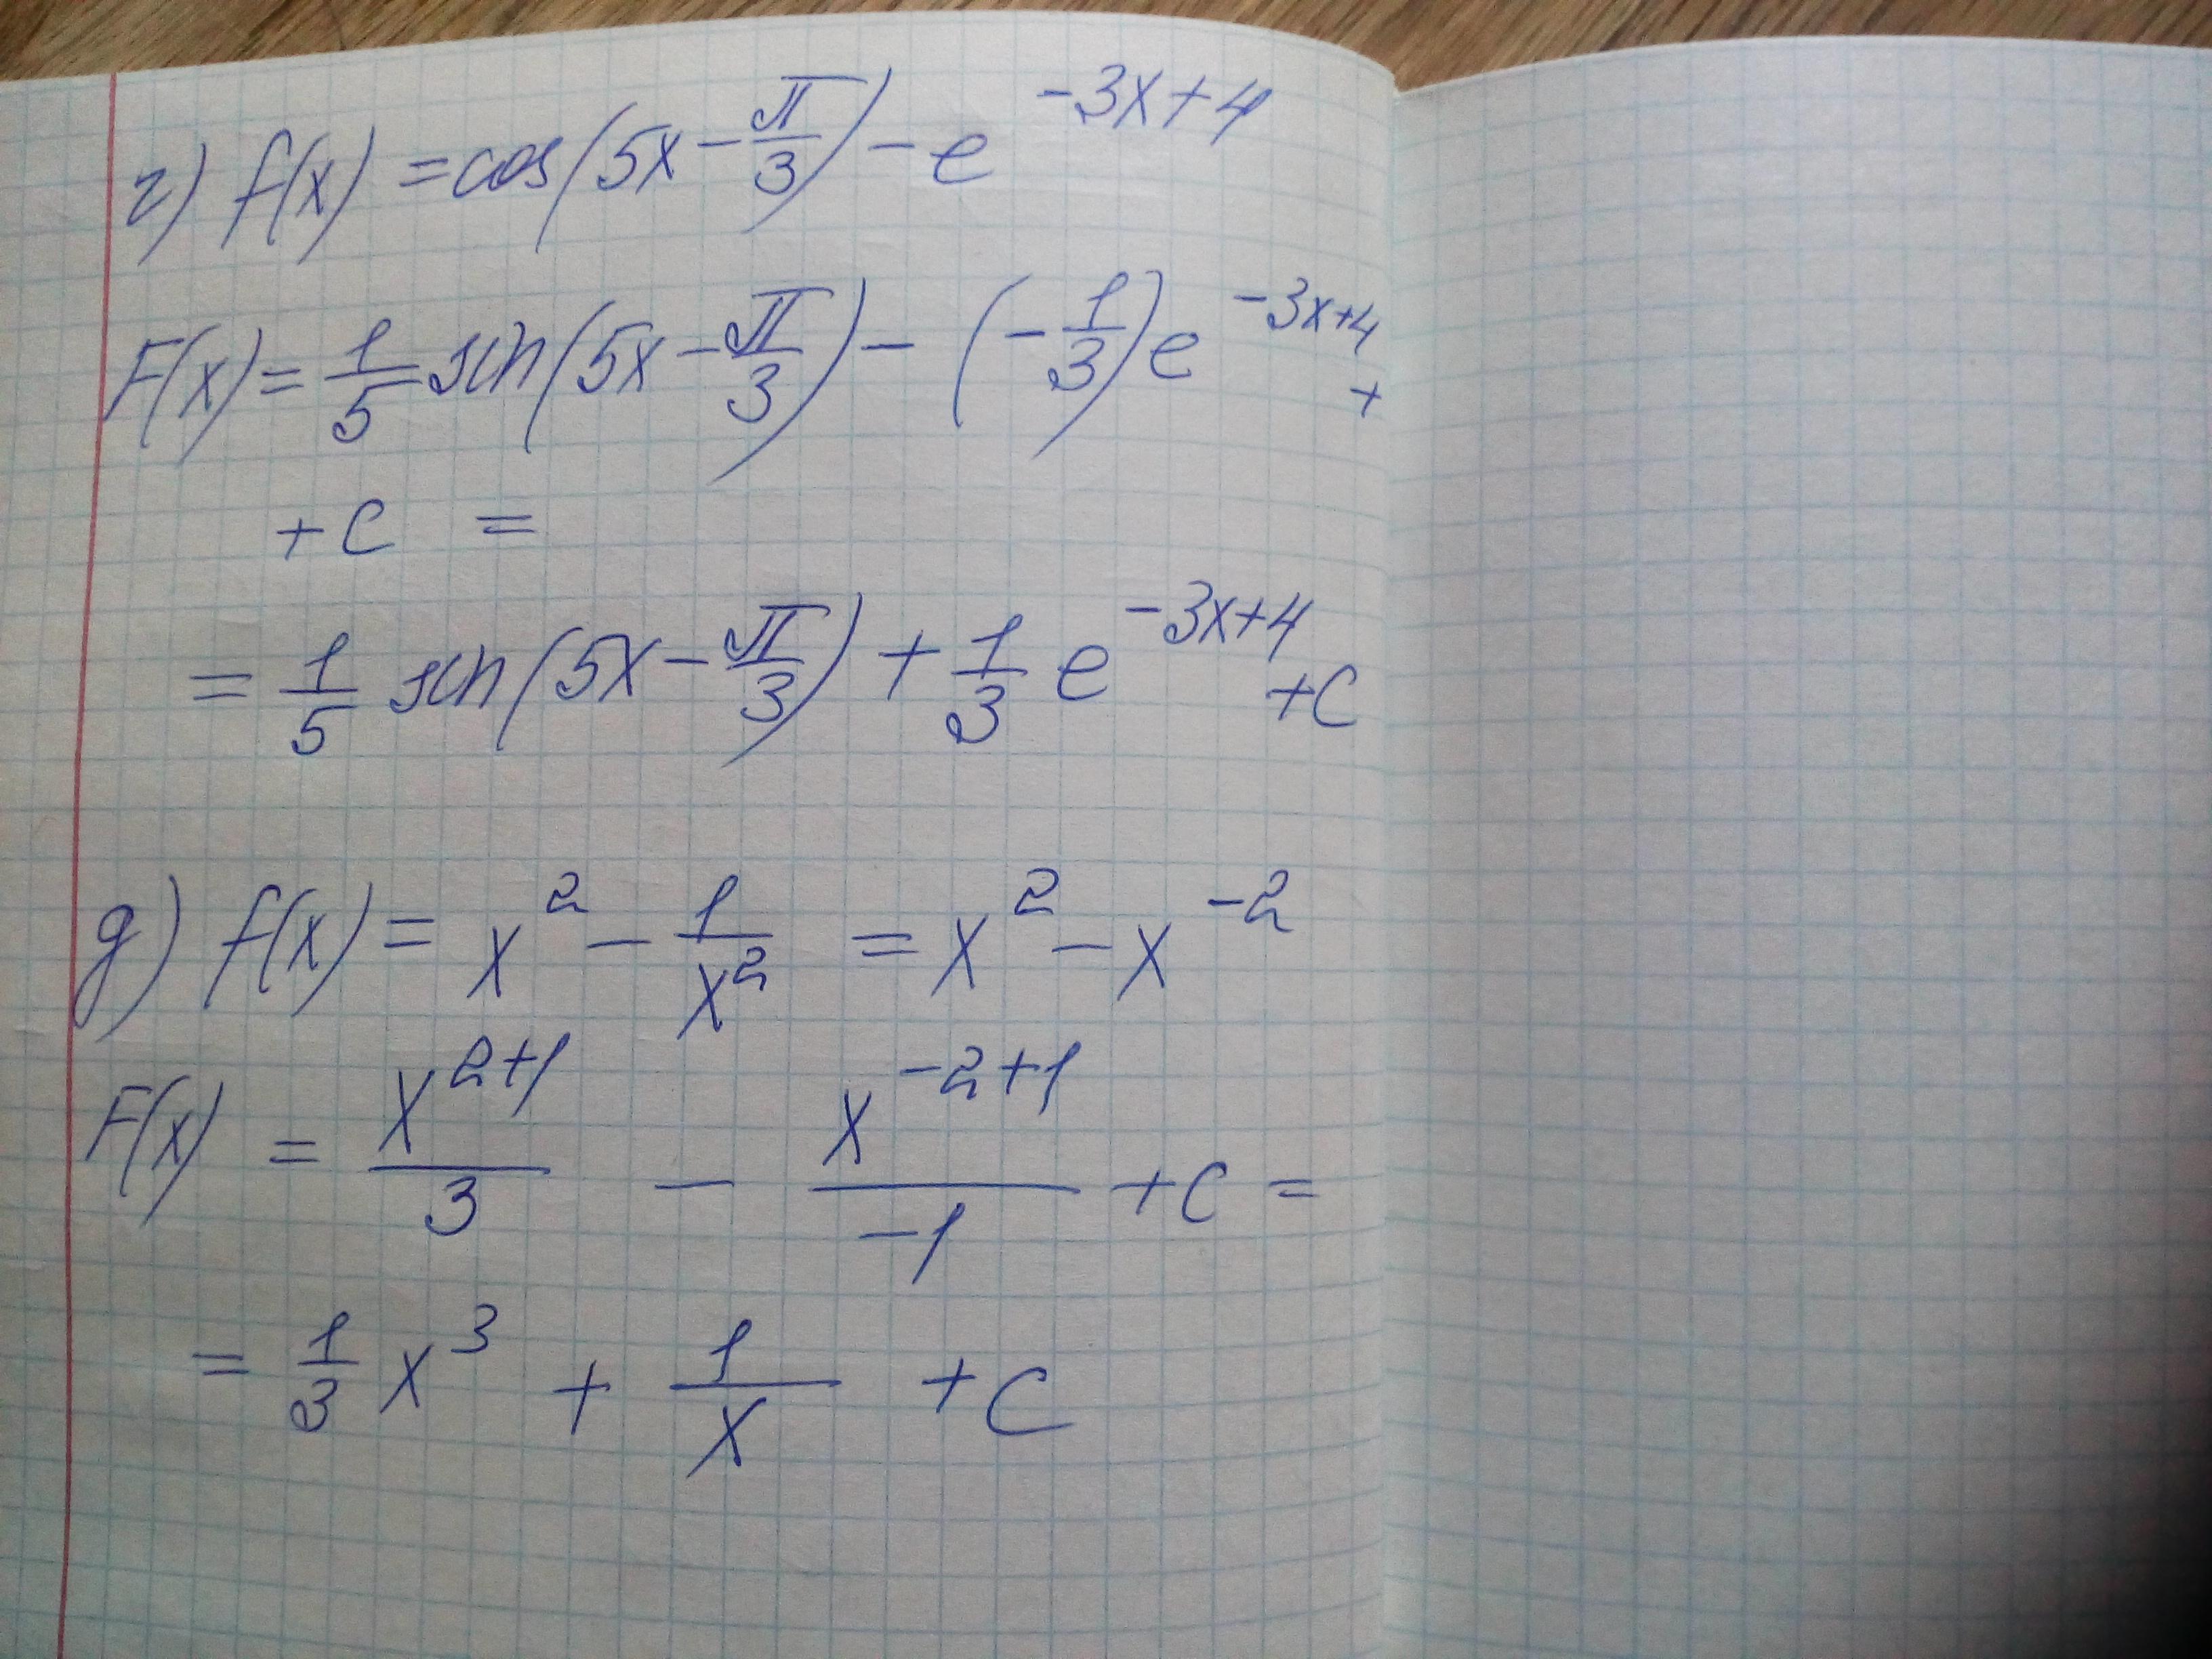 г) f(x) = cos(5x - π/3) - e^(-3x+4)
F(x) = 1/5 sin(5x - π/3) - (-1/3)e^(-3x+4) +
+ C =
= 1/5 sin(5x - π/3) + 1/3 e^(-3x+4) + C
g) f(x) = x^2 - 1/x^2 = x^2 - x^(-2)
F(x) = x^(2+1)/3 - x^(-2+1)/-1 + C =
= 1/3 x^3 + 1/x + C